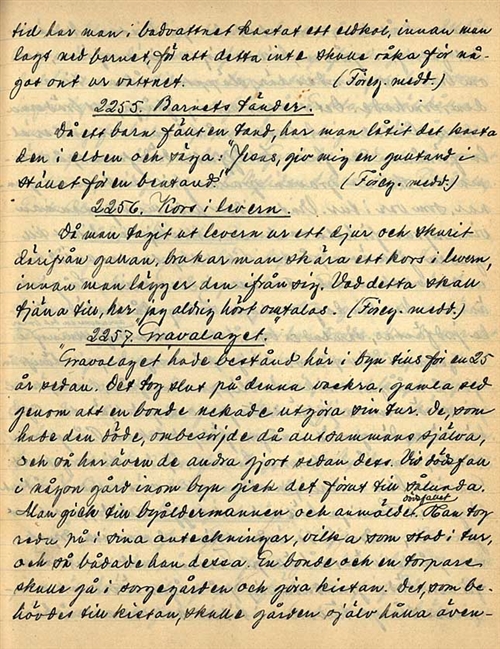 tid har man i badvattnet kastat ett eldkol, innan man
lagt ned barnet, för att detta inte skulle råka för nå-
got ont ur vattnet. (Föreg. medd.)
2255. Barnets tänder.
Då ett barn fällt en tand, har man låtit det kasta
den i elden och säga: "Jesus, giv mig en gulltand i
stället för en bentand!" (Föreg. medd.)
2256. Kors i levern.
Då man tagit ut levern ur ett djur och skurit
därifrån gallan, brukar man skära ett kors i levern,
innan man lägger den ifrån sig. Vad detta skall
tjäna till, har jag aldrig hört omtalas. (Föreg. medd.)
2257. "Gravalaget."
"Gravalaget hade bestånd här i byn tills för en 25
år sedan. Det tog slut på denna vackra, gamla sed
genom att en bonde nekade utgöra sin tur. De, som
hade den döde, ombesörjde då alltsammans själva,
och så har även de andra gjort sedan dess. Vid dödsfall
i någon gård inom byn gick det förut till sålunda.
Man gick till byåldermannen och anmälde dödsfallet. Han tog
reda på i sina anteckningar, vilka som stod i tur,
och så bådade han dessa. En bonde och en torpare
skulle gå i sorgegården och göra kistan. Det, som be-
hövdes till kistan, skulle gården själv hålla även-